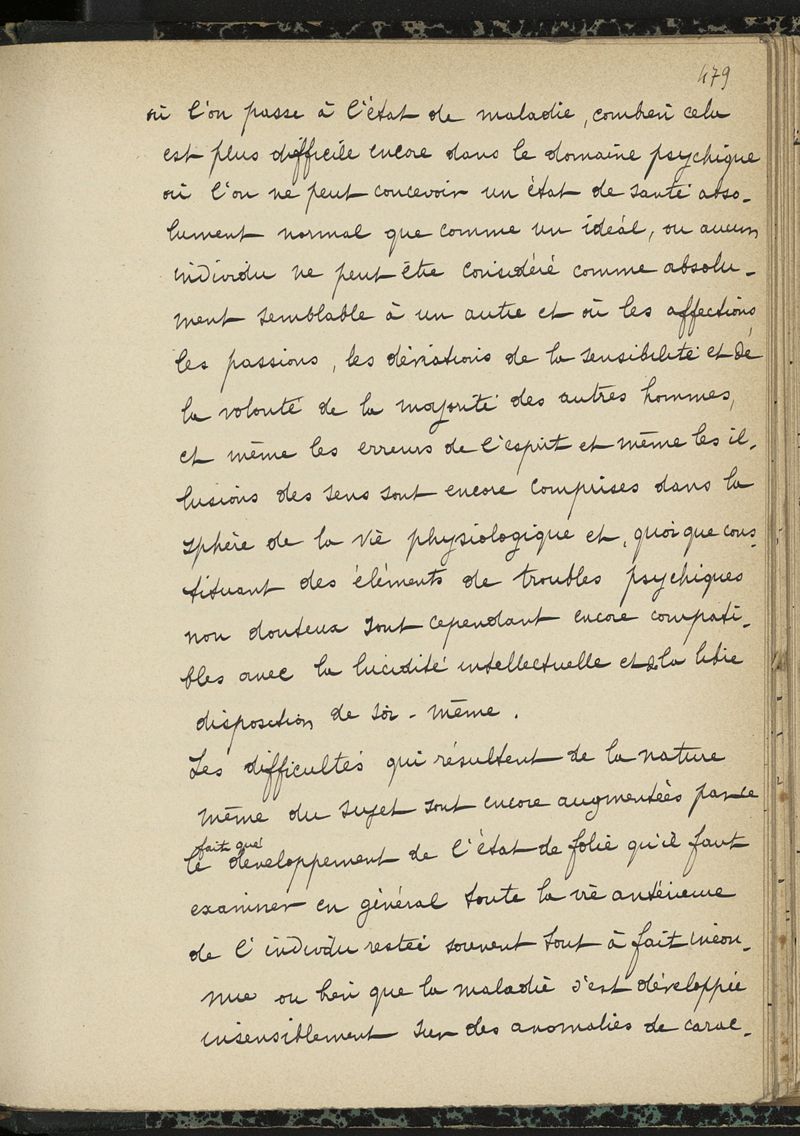 479
où l'on passe à l'état de maladie, combien cela
est plus difficile encore dans le domaine psychique
où l'on ne peut concevoir un état de santé abso-
lument normal que comme un idéal, ou aucun
individu ne peut être considéré comme absolu-
ment semblable à un autre et où les affections
les passions, les déviations de la sensibilité et de
la volonté de la majorité des autres hommes,
et même les erreurs de l'esprit et même les il-
lusions des sens sont encore comprises dans la
sphère de la vie physiologique et, quoique cons-
tituant des éléments de troubles psychiques
non douteux sont cependant encore compati-
bles avec la lucidité intellectuelle et la libre
disposition de soi-même.
Les difficultés qui résultent de la nature
même du sujet sont encore augmentées par ce
fait que
le développement de l'état de folie qu'il faut
examiner en général toute la vie antérieure
de l'individu restée souvent tout à fait incon-
nue ou bien que la maladie s'est développée
insensiblement sur des anomalies de carac-